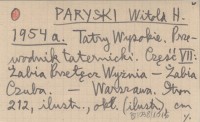 PARYSKI Witold H.
1954 a. Tatry Wysokie. Prze-
wodnik taternicki. Część VII:
Żabia Przełęcz Wyżnia – Żabia
Czuba. – Warszawa. Stron
212, ilustr., okł. (ilustr.) cm